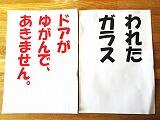 ドアが
ゆがんで、
あきません。
われた
ガラス